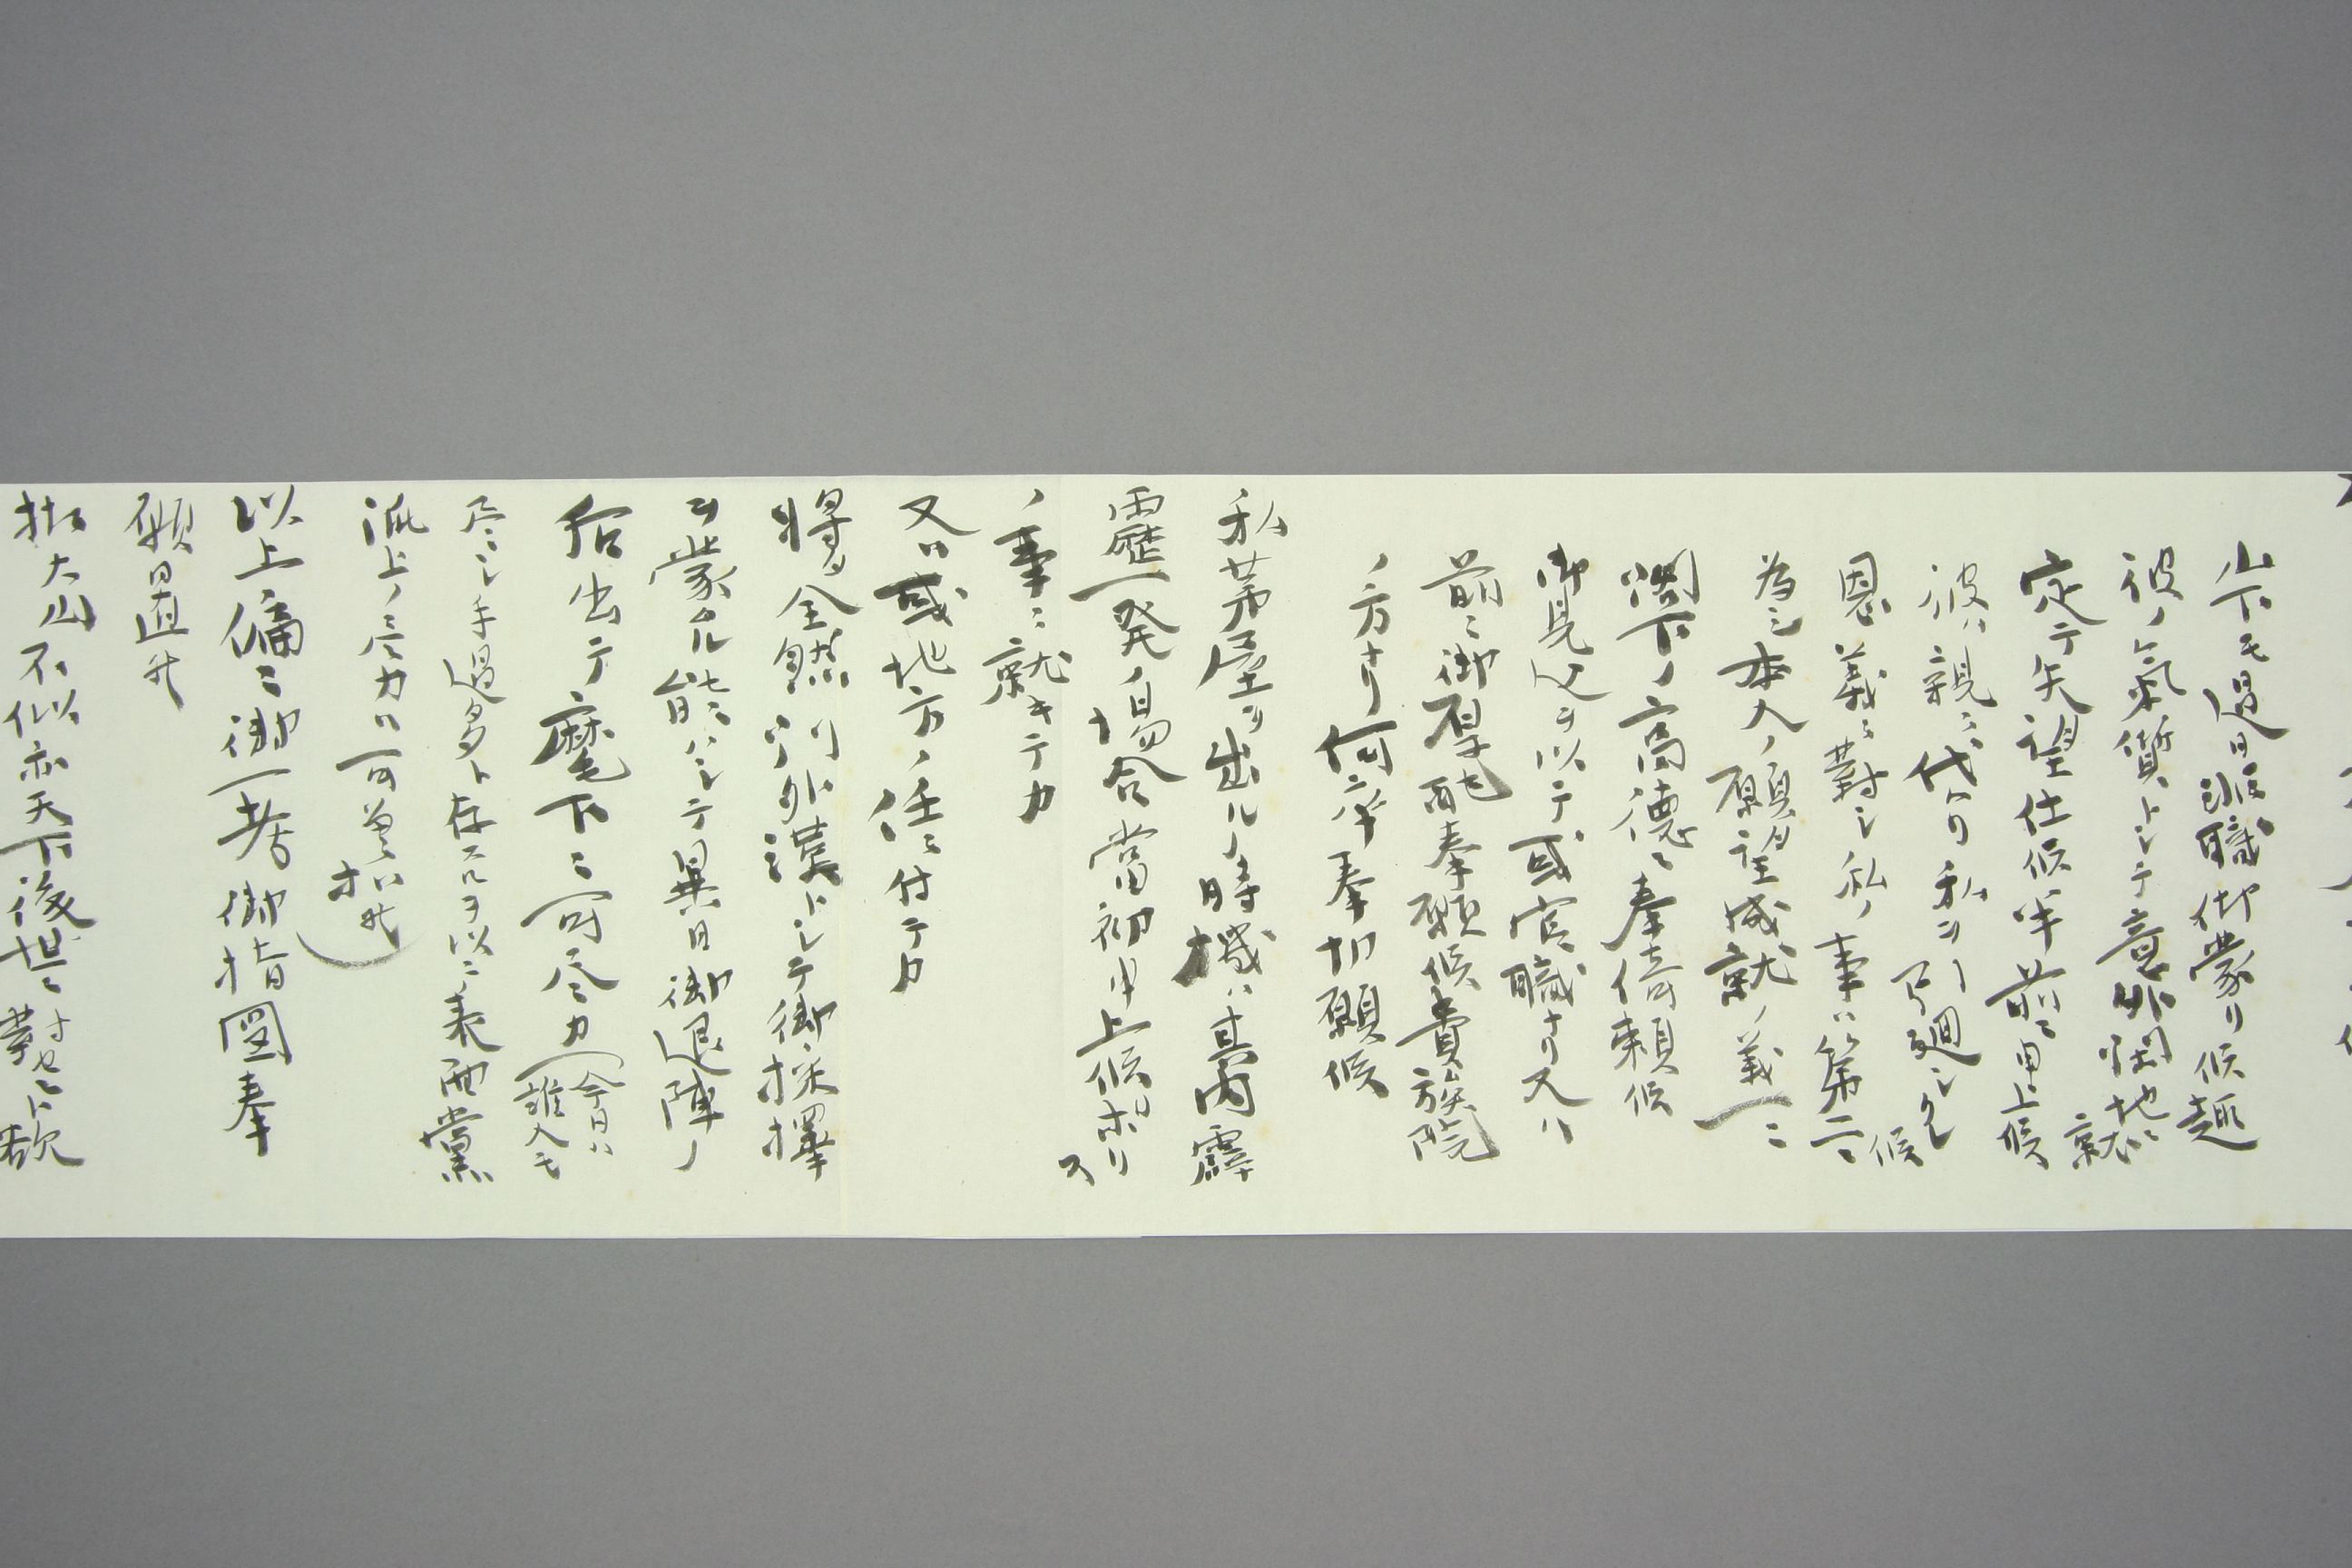 山下モ過日非職御蒙リ候趣
彼ノ気質トシテ意外之地ニ就
定テ失望仕候半前ニ申上候
彼ハ親ニ代リ私ヲ引廻シクレ候
恩義ニ対シ私ノ事ハ第二ニ
為シ本人ノ願望成就ノ義ニ
閣下ノ高徳ニ奉倚頼候
御見込ヲ以テ或官職ナリ又ハ
前ニ御願モ奉願候貴族院
ノ方ナリ何卒奉切願候
私茅屋ヲ出ル時機ハ其内霹
靂一発ノ場合当初申上候ホリス
ノ事ニ就キテカ
又ハ或地方ノ任ニ付テカ
将タ全然予外漢トシテ御採擇
ヲ蒙ル能ハズシテ異日御退陣ノ
后出テ麾下ニ可尽力(今日ハ誰人モ
尽シ手過多ト存スルヲ以テ表面黨
派上ノ尽力ハ可差扣哉)
以上偏ニ御一考御指図奉
願置候
拙大出不似亦天下後世ニ対セント欲